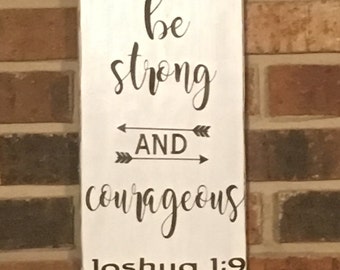 be
strong
AND
courageous
Joshua 1:9